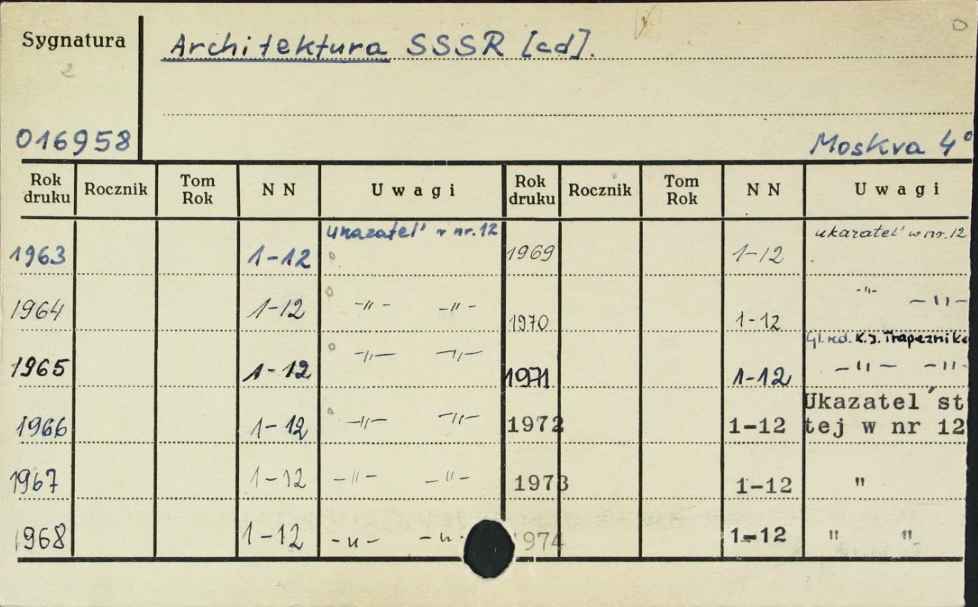 Sygnatura
Architektura SSSR [cd].
016958
Moskva 4°
Rok druku Rocznik Tom Rok NN Uwagi Rok druku Rocznik Tom Rok NN Uwagi
1963 1-12 Ukazatel' w nr. 12 1969 1-12 ukazatel' w nr. 12
1964 1-12 -"- -"- 1970 1-12 -"- -"-
Gl. red. K. J. Trapeznikov
1965 1-12 -"- -"- 1971 1-12 -"- -"-
1966 1-12 -"- -"- 1972 1-12 Ukazatel'st
tej w nr 12
1967 1-12 -"- -"- 1973 1-12 "
1968 1-12 -"- -"- 1974 1-12 " "